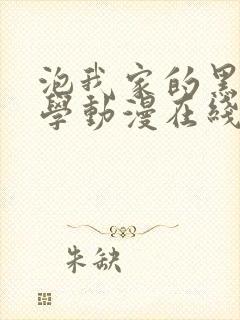 泡我家的黑
學動漫在綫
朱缺